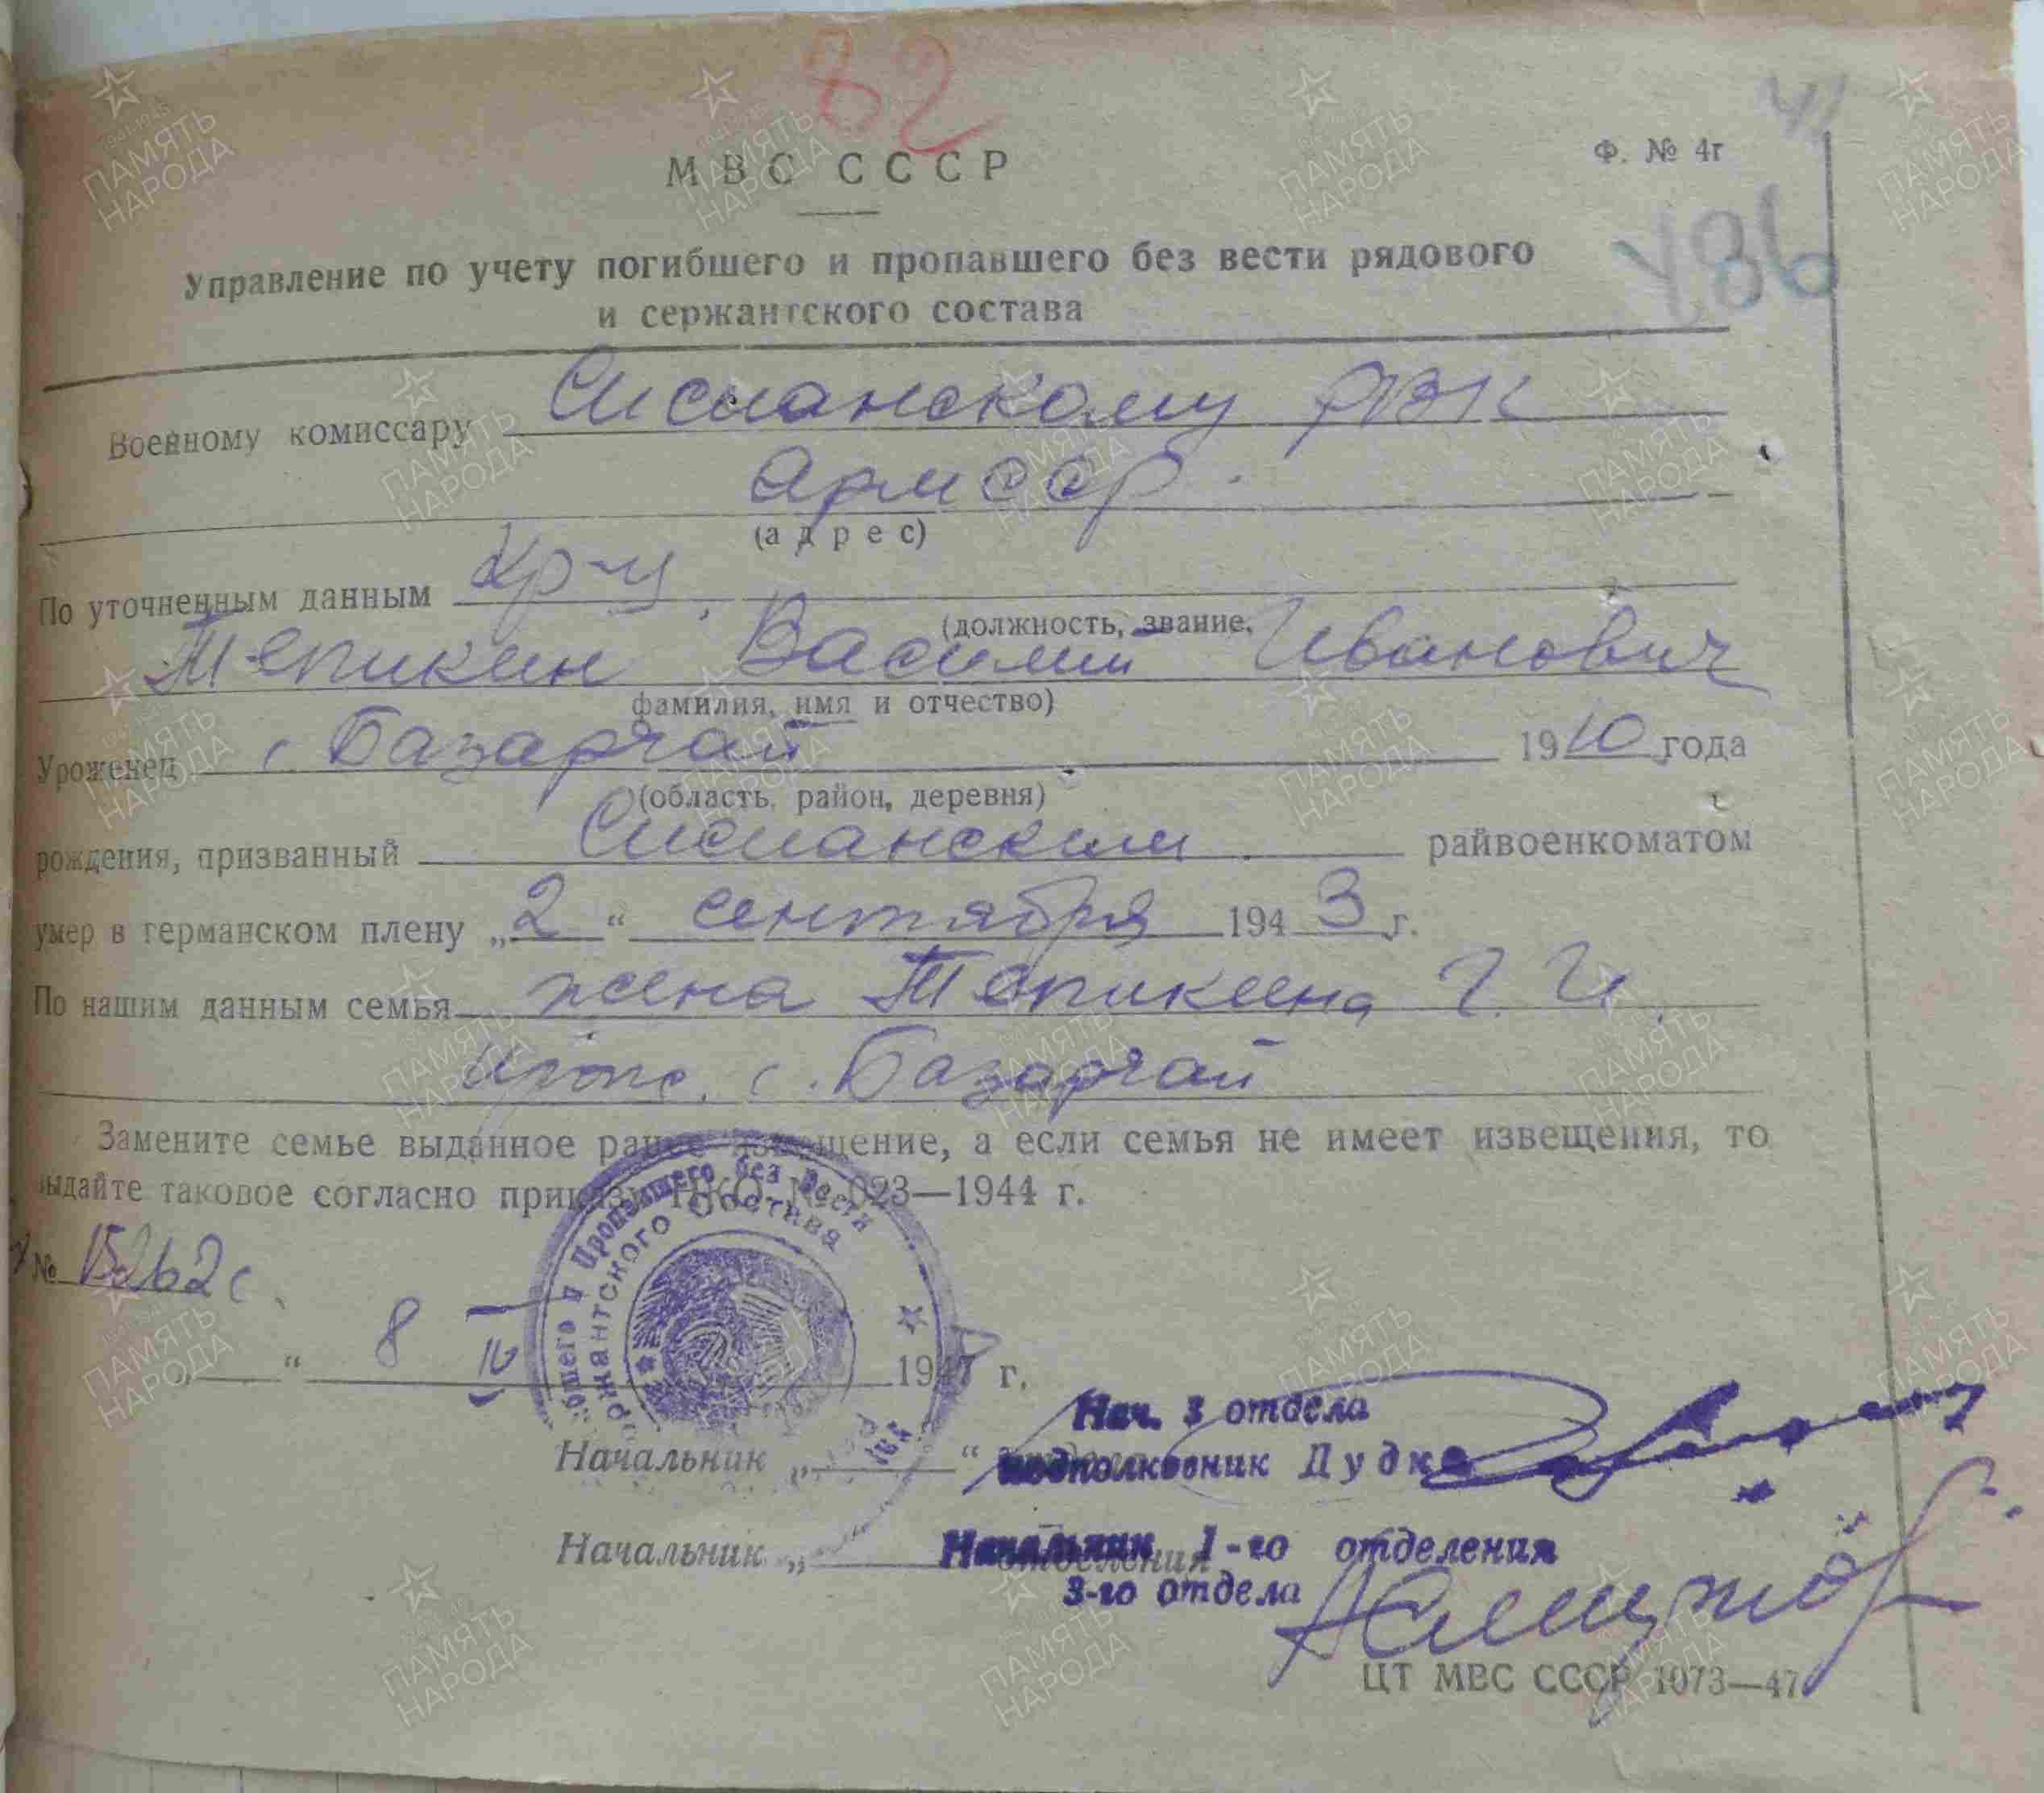 82
МВС СССР
Ф. № 4г
Управление по учету погибшего и пропавшего без вести рядового
и сержантского состава
Военному комиссару Сисианскому РВК
АрмССР.
(адрес)
По уточненным данным Кр-ц
(должность, звание,
Тепикин Василий Иванович
фамилия, имя и отчество)
Уроженец с. Базарчай 1910 года
(область, район, деревня)
рождения, призванный Сисианским райвоенкоматом
умер в германском плену „2“ сентября 1943 г.
По нашим данным семья жена Тепикина Г. И.
прож. с. Базарчай
Замените семье выданное ранее извещение, а если семья не имеет извещения, то
выдайте таковое согласно приказу НКО № 023—1944 г.
№
“ 8 1947 г.
Пропавшего без вести
Состава
Нач. 3 отдела
Начальник „ “ подполковник Дудка
Начальник „ Начальник 1-го отделения
3-го отдела
ЦТ МВС СССР 1073—47
ПАМЯТЬ НАРОДА